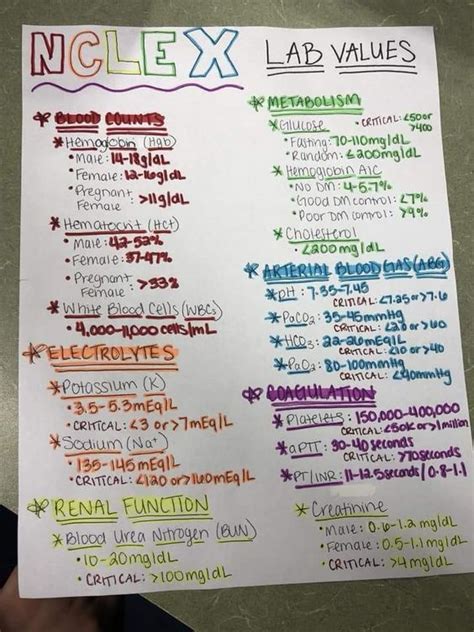 NCLEX LAB VALUES
* BLOOD COUNTS
* Hemoglobin (Hgb)
• Male: 14-18g/dL
• Female: 12-16g/dL
• Pregnant Female: >11g/dL
* Hematocrit (Hct)
• Male: 42-52%
• Female: 37-47%
• Pregnant Female: >33%
* White Blood Cells (WBCs)
• 4,000-11,000 cells/mL
* ELECTROLYTES
* Potassium (K)
• 3.5-5.3mEq/L
• CRITICAL: <3 or >7mEq/L
* Sodium (Na+)
• 135-145mEq/L
CRITICAL: <120 or >160mEq/L
* RENAL FUNCTION
* Blood Urea Nitrogen (BUN)
• 10-20mg/dL
• CRITICAL: >100mg/dL
* METABOLISM
* Glucose • CRITICAL: <50 or >400
• Fasting: 70-110mg/dL
• Random: ≤200mg/dL
* Hemoglobin A1C
• No DM: 4-5.7%
• Good DM control: <7%
• Poor DM control: >9%
* Cholesterol
• <200mg/dL
* ARTERIAL BLOOD GAS (ABG)
* pH: 7.35-7.45
CRITICAL: <7.25 or >7.6
* PaCO2: 35-45mmHg
CRITICAL: <20 or >60
* HCO3: 22-26mEq/L
CRITICAL: <10 or >40
* PaO2: 80-100mmHg
CRITICAL: <40mmHg
* COAGULATION
* Platelets: 150,000-400,000
CRITICAL: <50K or >1 million
* aPTT: 30-40 seconds
CRITICAL: >70seconds
* PT/INR: 11-12.5seconds / 0.8-1.1
* Creatinine
• Male: 0.6-1.2 mg/dL
• Female: 0.5-1.1 mg/dL
• CRITICAL: >4mg/dL